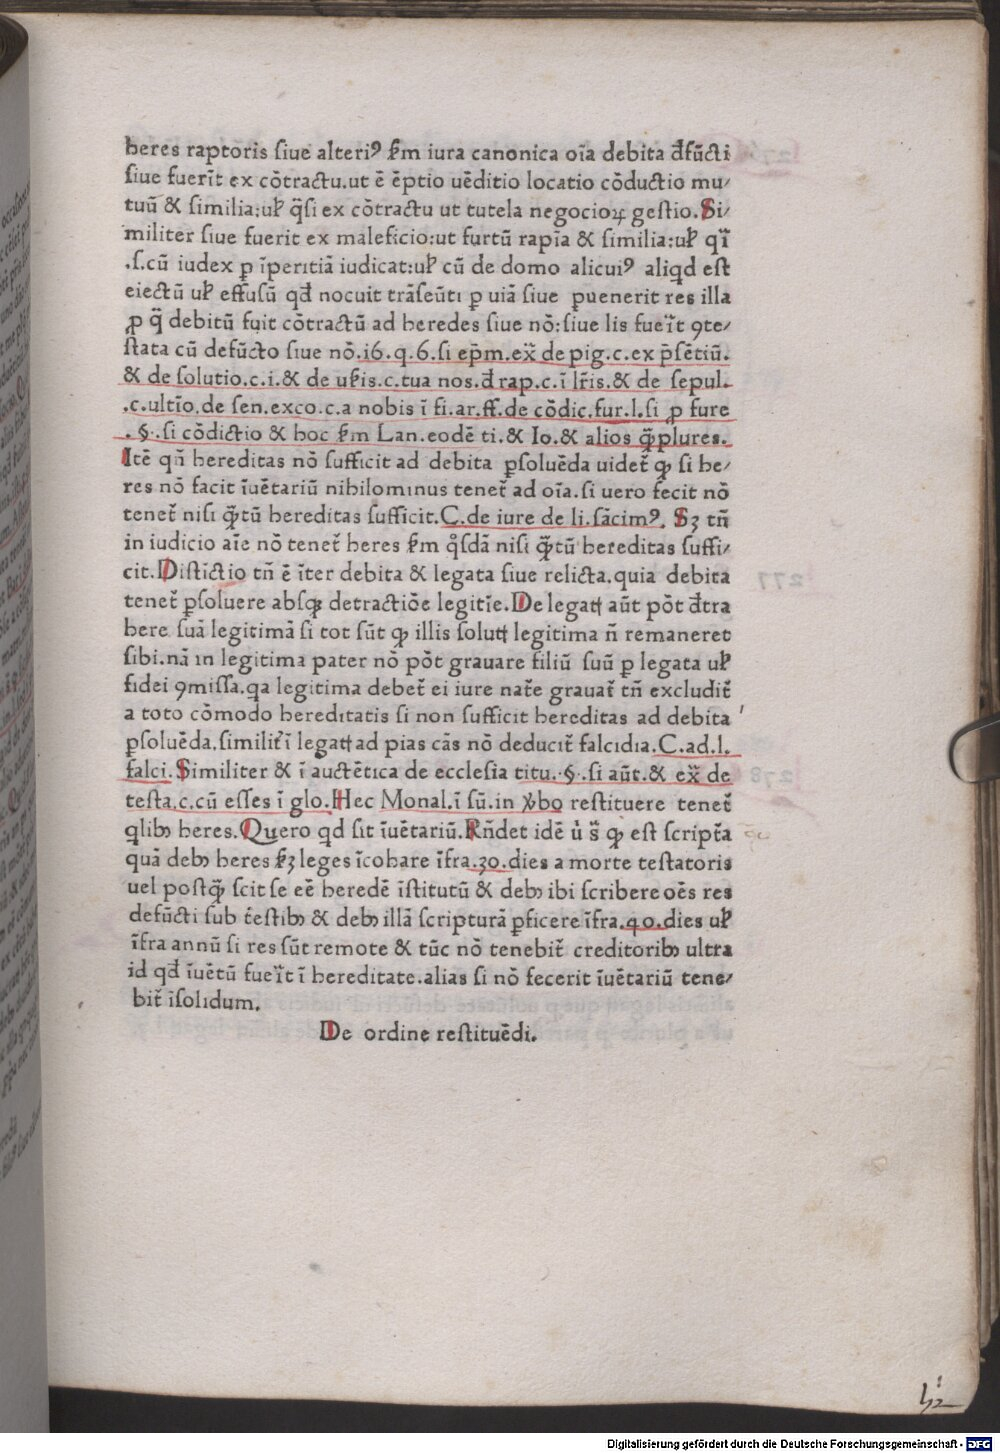 heres raptoris ſiue alteriꝰ ẜm iura canonica oīa debita đfūcti
ſiue fuerīt ex cōtractu.ut ē ēptio uēditio locatio cōductio mu⸗
tuū & ſimilia:uꝉ q̄ſi ex cōtractu ut tutela negocioꝝ geſtio.Si⸗
militer ſiue fuerit ex maleficio:ut furtū rapīa & ſimilia:uꝉ qͥſi
.ſ.cū iudex ꝑ īperitiā iudicat:uꝉ cū de domo alicuiꝰ aliqd eſt
eiectū uꝉ effuſū qđ nocuit trāſeūti ꝑ uiā ſiue ꝓuenerit res illa
ꝓ q̄ debitū fuit cōtractū ad heredes ſiue nō:ſiue lis fueīt ꝯte⸗
ſtata cū defūcto ſiue nō.i6.q.6.ſi ep̄m.ex̄ de pig.c.ex p̄ſētiū.
& de ſolutio.c.i.& de uꝉis.c.tua nos.đ rap.c.ī lr̄is.& de ſepul.
.c.ultīo.de ſen.exco.c.a nobis ī fi.ar.ff.de cōdic.fur.l.ſi ꝓ fure
.§.ſi cōdictio & hoc ẜm Lan.eodē ti.& Io.& alios ꝙ̄plures.
Itē qn̄ hereditas nō ſufficit ad debita ꝑſoluēda uidet᷑ ꝙ ſi he⸗
res nō facit īuētariū nihilominus tenet᷑ ad oīa.ſi uero fecit nō
tenet᷑ niſi ꝙ̄tū hereditas ſufficit.C.de iure de li.ſācimꝰ. Sꝫ tn̄
in iudicio aīe nō tenet᷑ heres ẜm qͦſdā niſi ꝙ̄tū hereditas ſuffi⸗
cit.Diſtictio tn̄ ē īter debita & legata ſiue relicta.quia debita
tenet᷑ ꝑſoluere abſqꝫ detractiōe legitīe.De legatꝭ aūt pōt đtra
here ſuā legitimā ſi tot ſūt ꝙ illis ſolutꝭ legitima n̄ remaneret
ſibi.nā in legitima pater nō pōt grauare filiū ſuū ꝑ legata uꝉ
fidei ꝯmiſſa.qa legitima debet᷑ ei iure nat᷑e grauat᷑ tn̄ excludit᷑
a toto cōmodo hereditatis ſi non ſufficit hereditas ad debita
ꝑſoluēda.ſimilit᷑ ī legatꝭ ad pias cās nō deducit᷑ falcidia.C.ad.l.
falci.Similiter & ī auctētica de eccleſia titu.§.ſi aūt.& ex̄ de
teſta.c.cū eſſes ī glo.Hec Monal.ī ſū.in ꝟbo reſtituere tenet᷑
qlibꝫ heres.Quero qd ſit īuētariū.Rn̄det idē ꝙ eſt ſcript᷑a
quā debꝫ heres ẜꝫ leges īcohare īfra.30.dies a morte teſtatoris
uel poſtꝙ̄ ſcit ſe eē heredē īſtitutū & debꝫ ibi ſcribere oēs res
defūcti ſub t᷑eſtibꝫ & debꝫ illā ſcripturā ꝑficere īfra.40.dies uꝉ
īfra annū ſi res ſūt remote & tūc nō tenebit᷑ creditoribꝫ ultra
id qđ īuētū fueīt ī hereditate.alias ſi nō fecerit īuētariū tene⸗
bit᷑ īſolidum.
De ordine reſtituēdi.
Digitalisierung gefördert durch die Deutsche Forschungsgemeinschaft - DFG